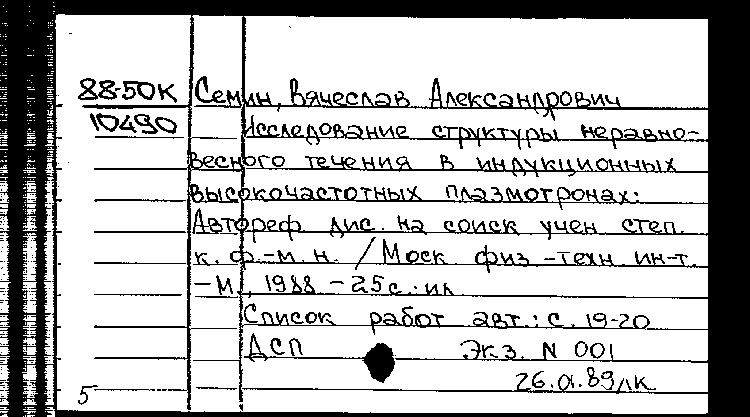 88-50К Семин, Вячеслав Александрович
10490 Исследование структуры неравно-
весного течения в индукционных
высокочастотных плазмотронах:
Автореф дис. на соиск учен степ.
к. ф.-м. н. / Моск физ-техн ин-т.
-М., 1988 - 25с. ил
Список работ авт.: с. 19-20
ДСП Экз. N 001
5